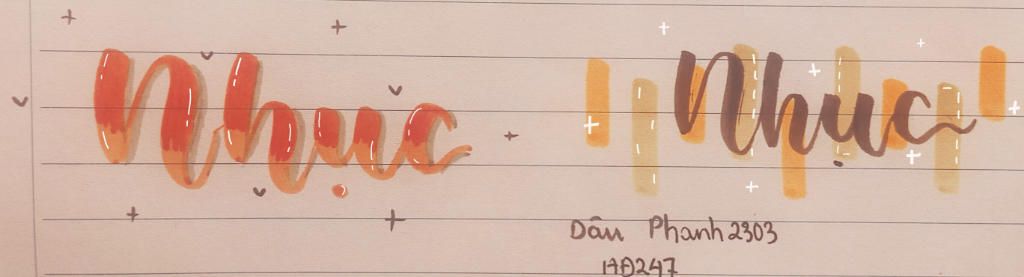 Nhục Nhục
Dâu Phanh2303
HĐ247